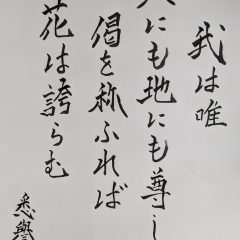 我は唯
にも地にも尊し
偈を称ふれば
花は誇らむ
悉譽